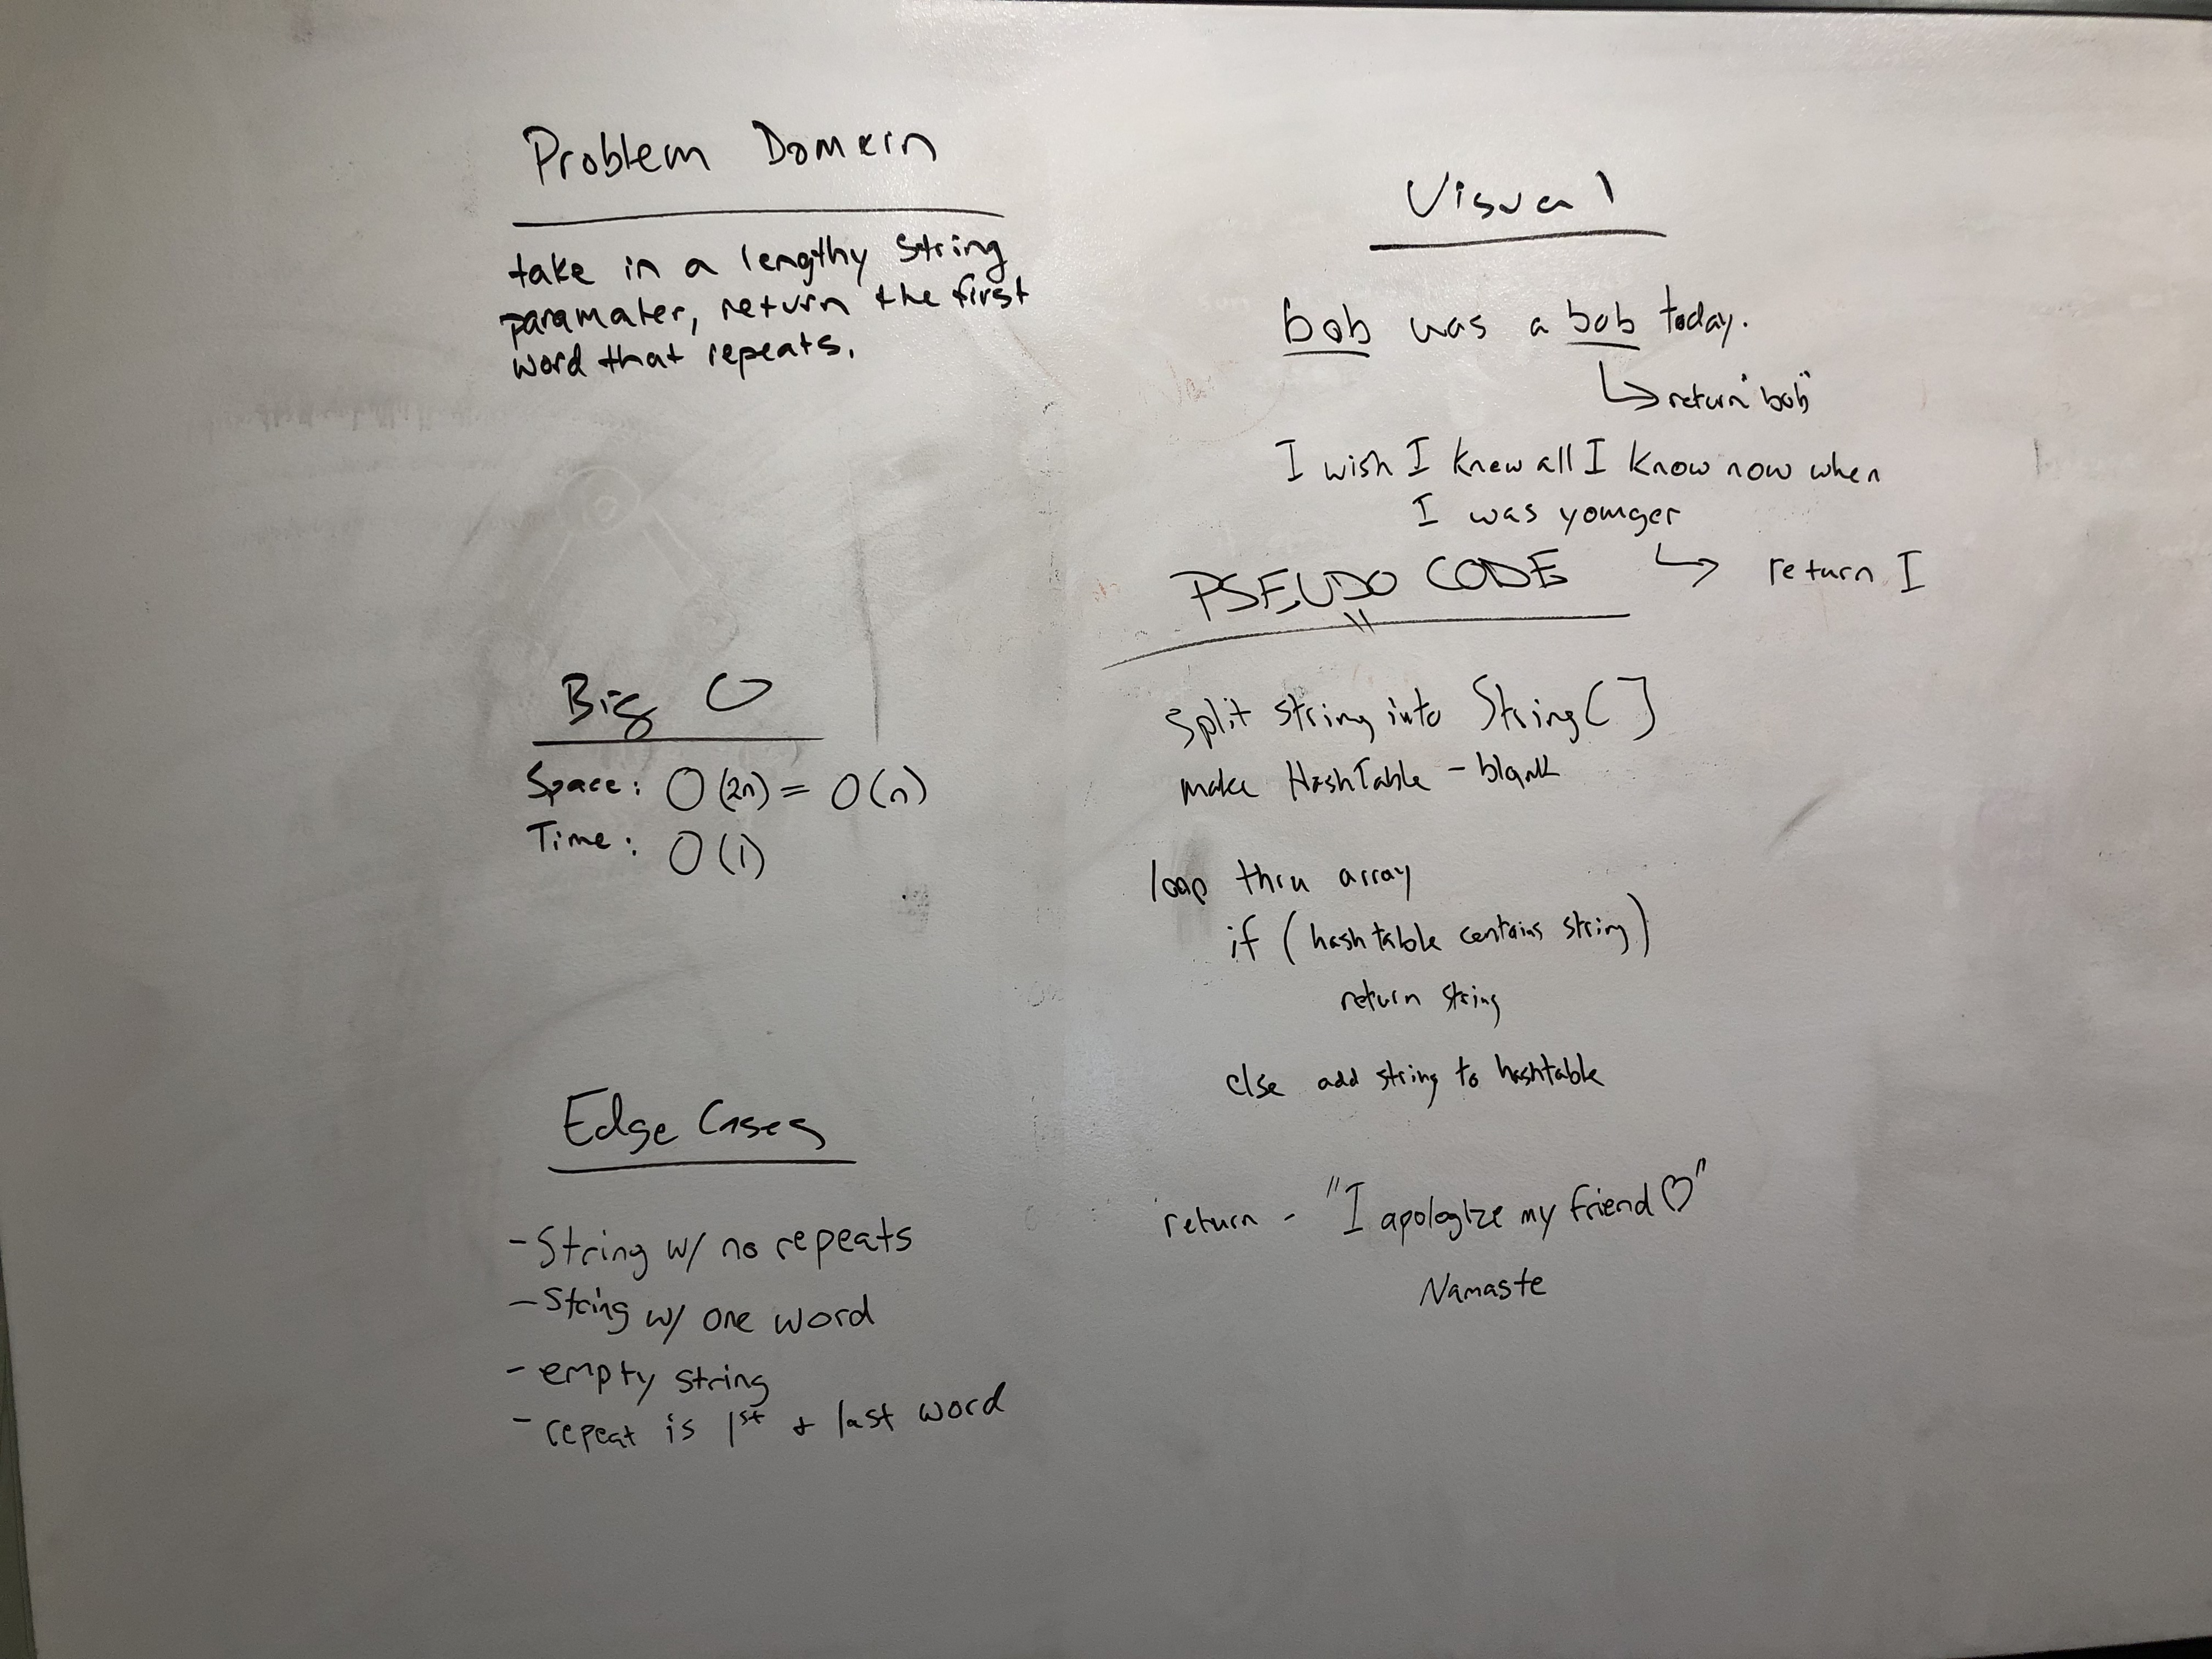 Problem Domain
take in a lengthy string
paramater, return the first
word that repeats.
Big O
Space: O(2n) = O(n)
Time: O(1)
Edge Cases
- String w/ no repeats
- String w/ one word
- empty string
- repeat is 1st + last word
Visual
bob was a bob today.
return "bob"
I wish I knew all I know now when
I was younger
return I
PSEUDO CODE
split string into String[]
make HashTable - blank
loop thru array
if (hashtable contains string)
return string
else add string to hashtable
return - "I apologize my friend ♡"
Namaste